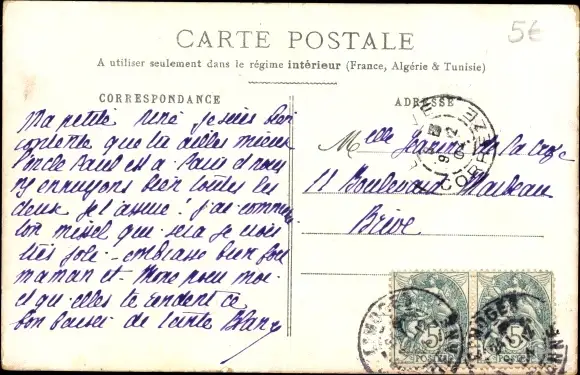 5€
CARTE POSTALE
A utiliser seulement dans le régime intérieur (France, Algérie & Tunisie)
CORRESPONDANCE
ADRESSE
Ma petite je suis bien
contente que tu ailles mieux
l'oncle Paul est a Paris et nous
ns ennuyons bien toutes les
deux je t'assure! j'ai commencé
ton missel qui sera je crois
très joli - embrasse bien fort
maman et pour moi
et qu'elles te rendent ce
bon baiser de tante
Melle Jeanne de la
11 Boulevard
Brive
CORREZE
5
POSTES
5
POSTES
LIMOGES
VIENNE